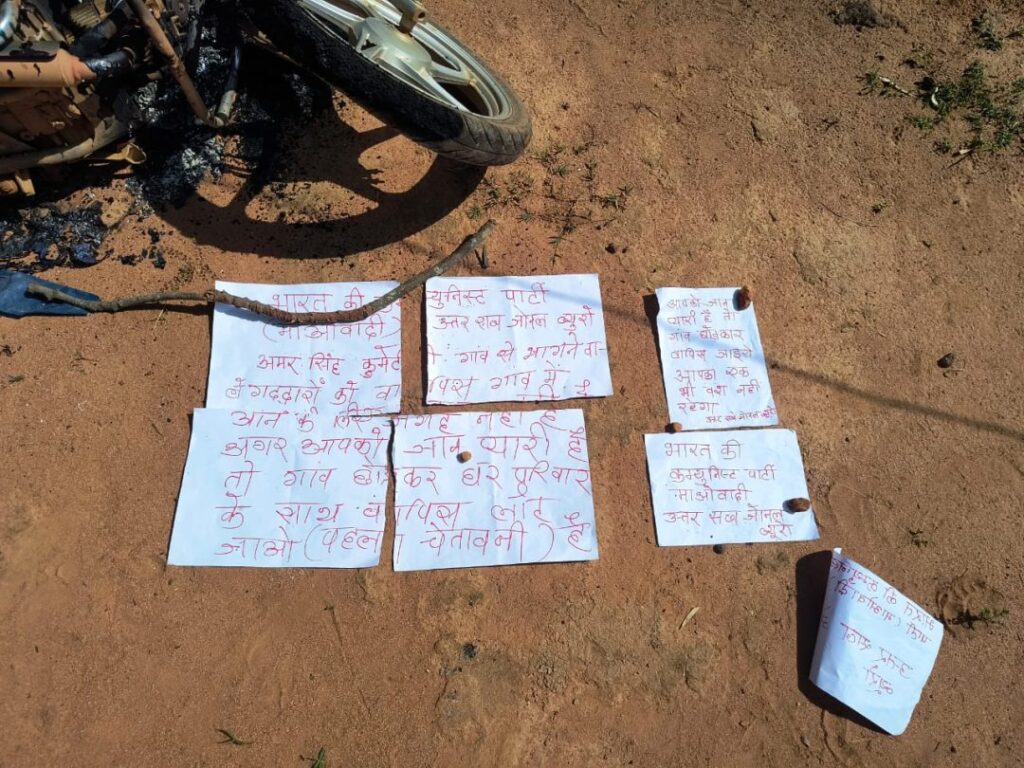 भारत की कम्युनिस्ट पार्टी
(माओवादी) उत्तर सब जोनल ब्यूरो
अमर सिंह कुमेटी गांव से भागने वा-
ले गद्दारों को वापिस गांव में
आने के लिए जगह नही है
अगर आपको जान प्यारी है
तो गांव छोड़कर घर परिवार
के साथ वापिस लौट
जाओ (पहला चेतावनी) है
आपको जान
प्यारी है तो
गांव छोड़कर
वापिस जाइये
आपका एक
भी वश नही
रहेगा
उत्तर सब जोनल ब्यूरो
भारत की
कम्युनिस्ट पार्टी
माओवादी
उत्तर सब जोनल
ब्यूरो